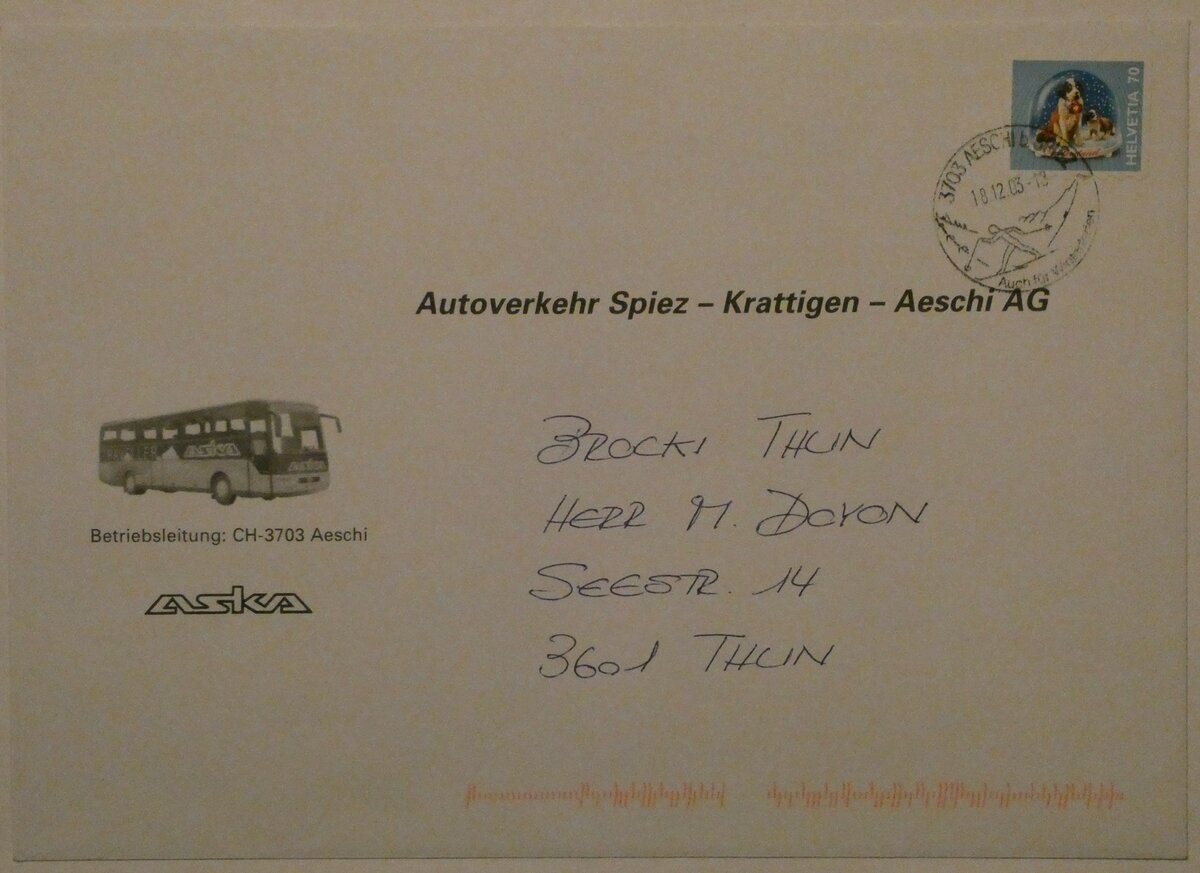 HELVETIA 70
3703 AESCHI B.
18.12.03-13
Auch für Wintersferien
Autoverkehr Spiez – Krattigen – Aeschi AG
aska
aska
Betriebsleitung: CH-3703 Aeschi
aska
BROCKI THUN
HERR M. DOVON
SEESTR. 14
3601 THUN